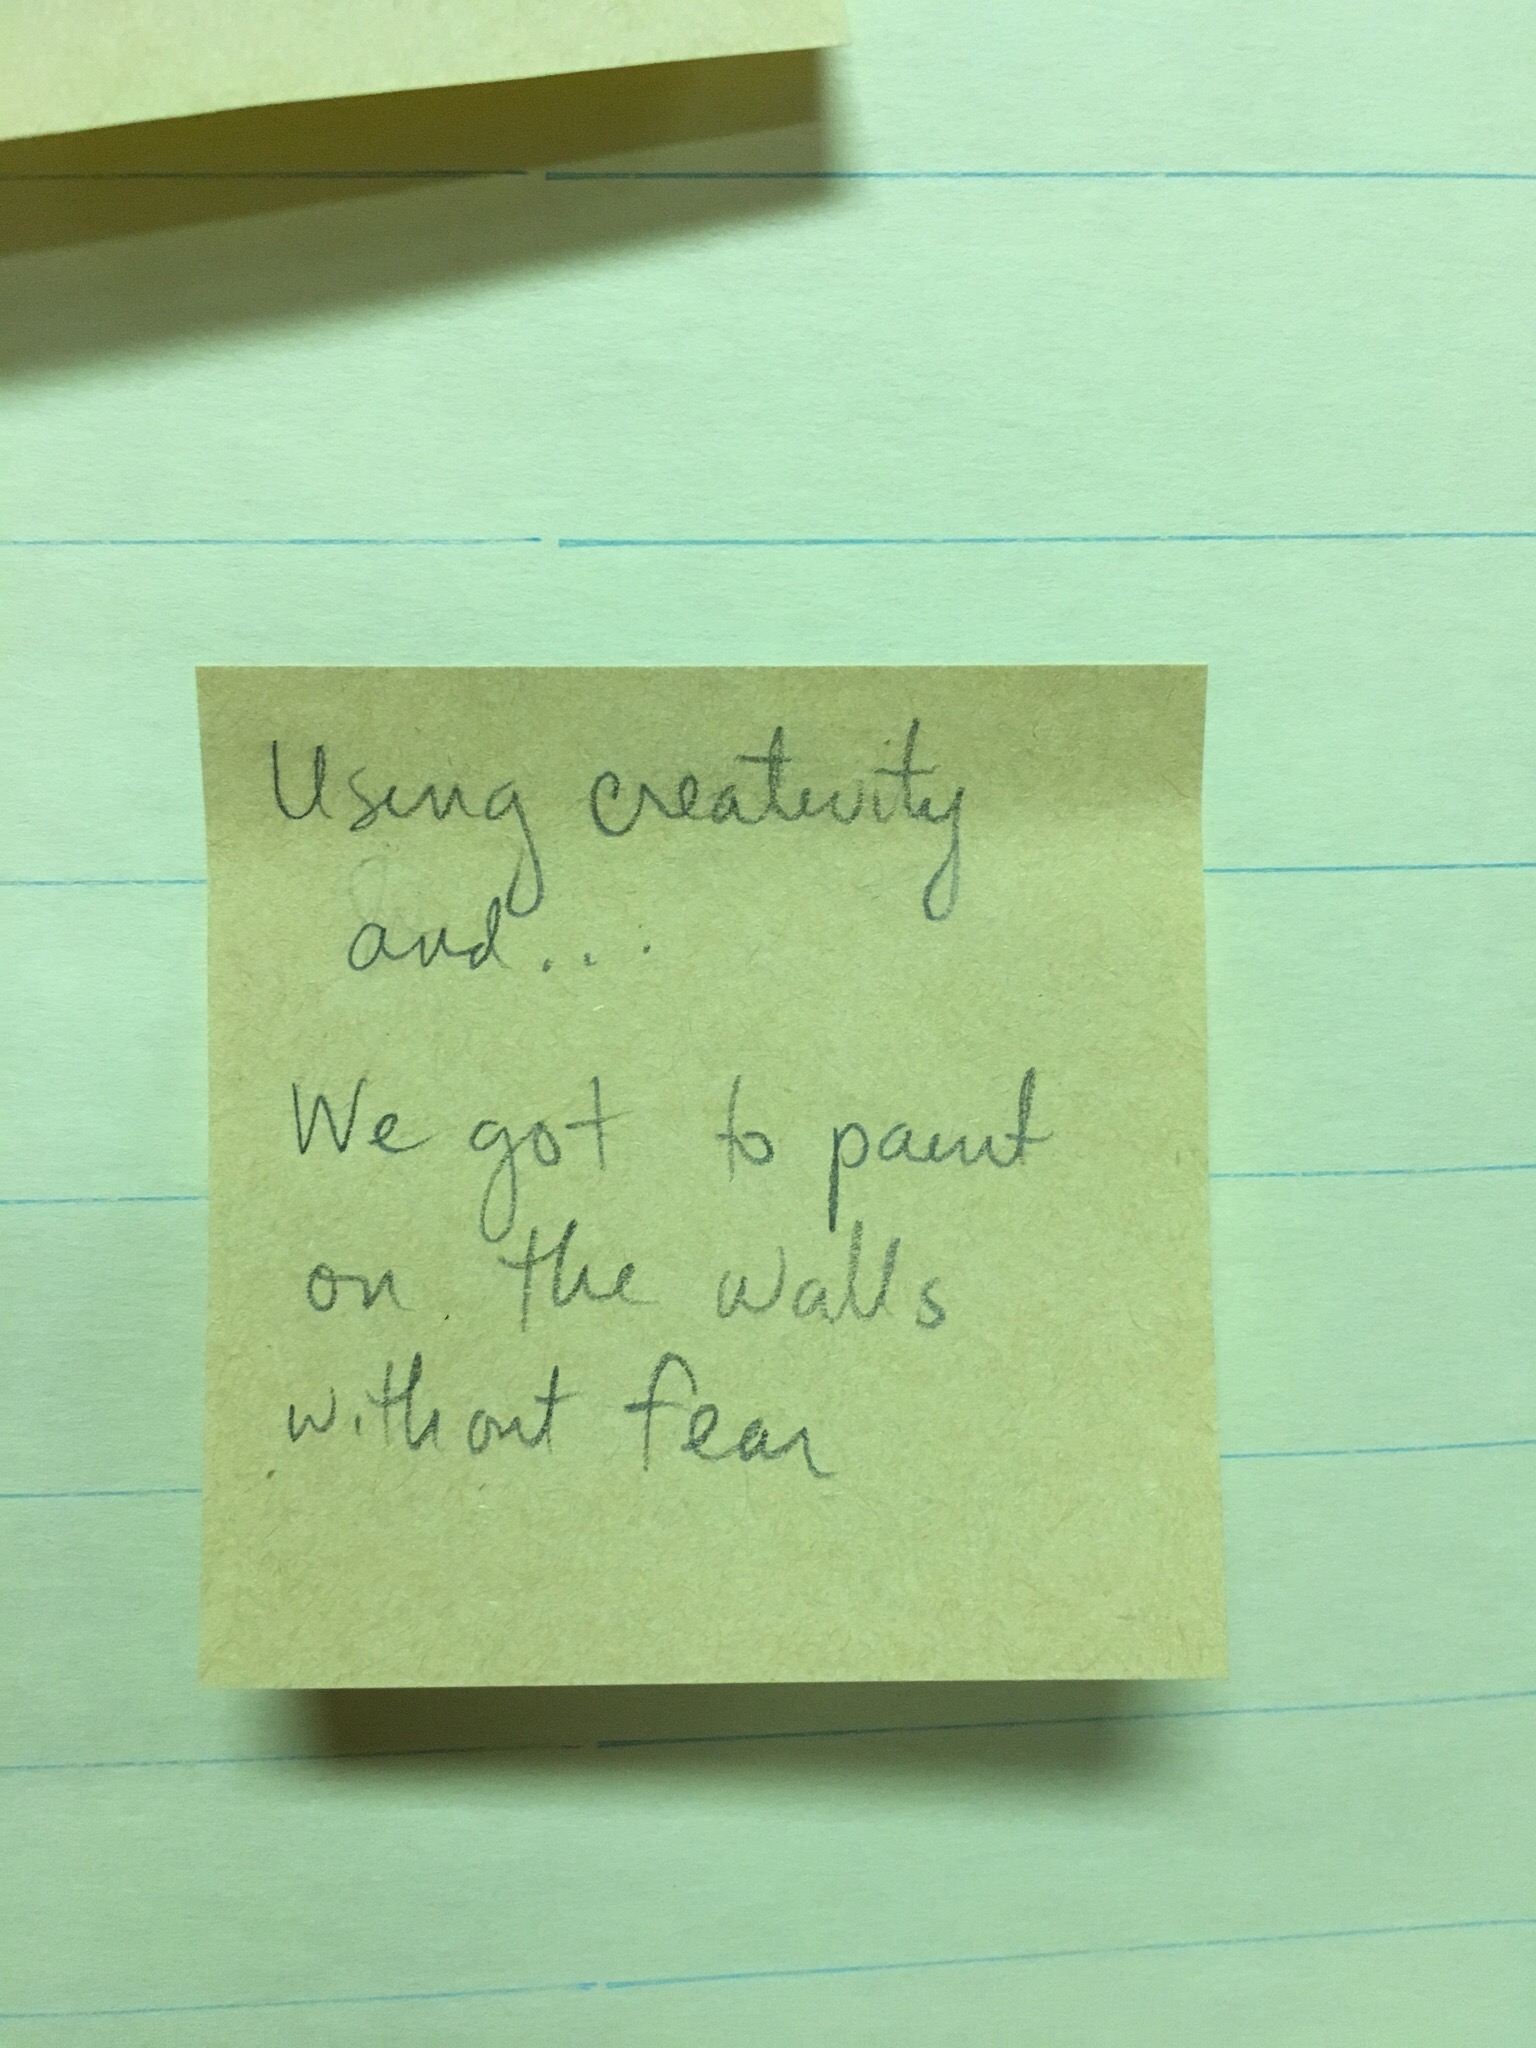 Using creativity
and...
We got to paint
on the walls
without fear